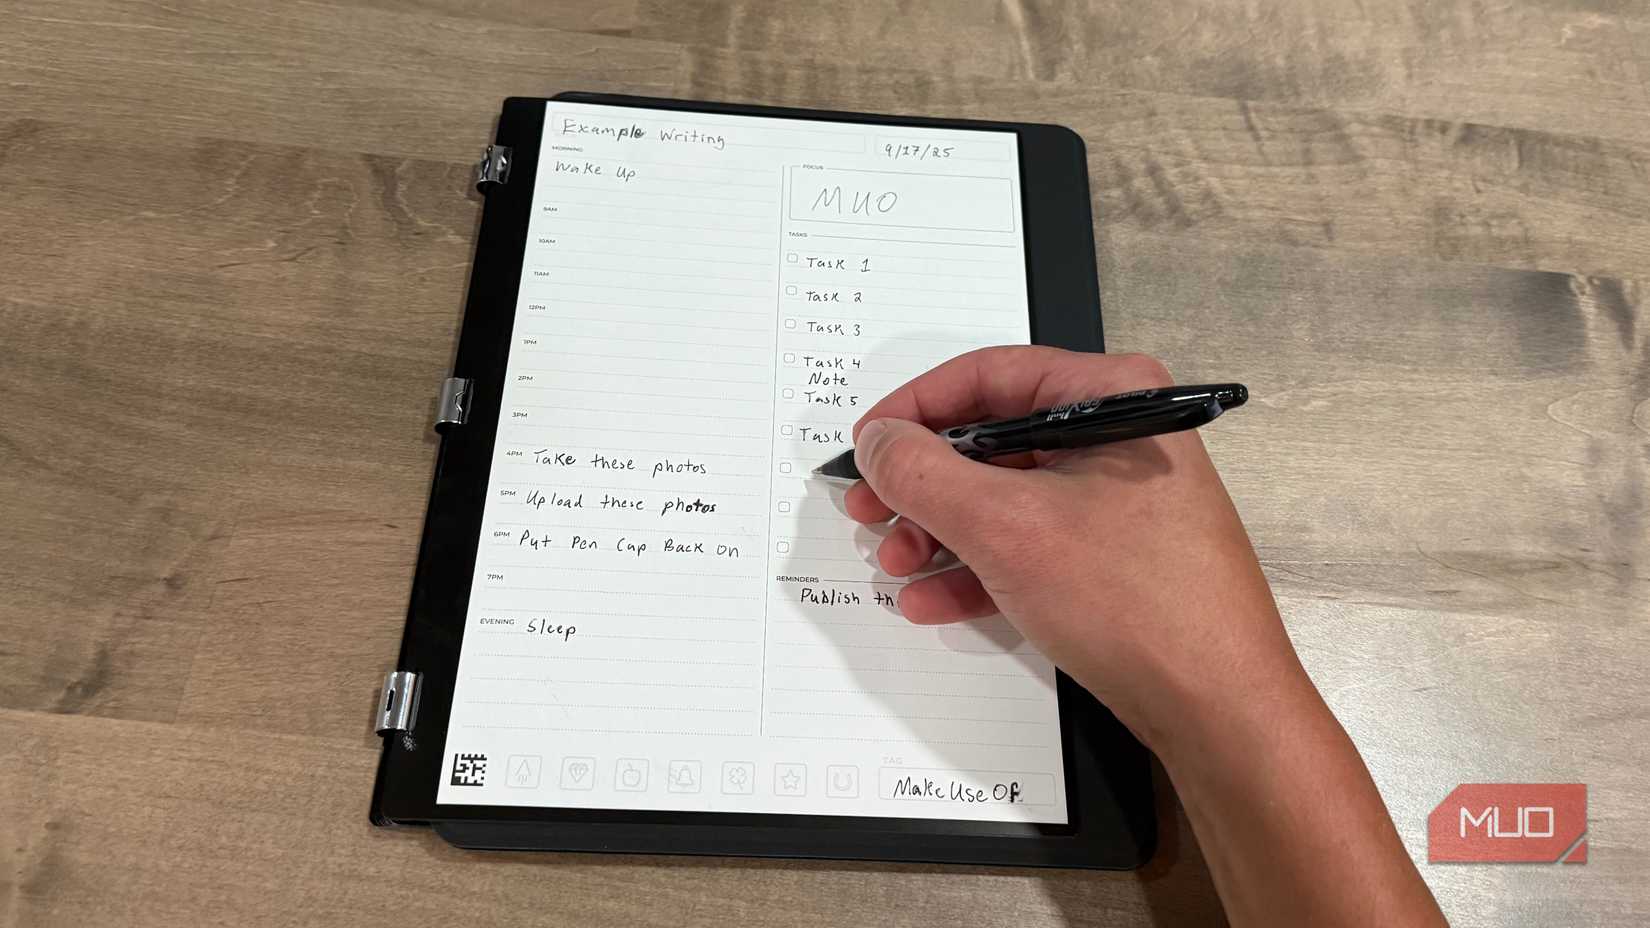 Example Writing
9/17/25
MORNING
Wake Up
9AM
10AM
11AM
12PM
1PM
2PM
3PM
4PM Take these photos
5PM Upload these photos
6PM Put Pen Cap Back On
7PM
EVENING Sleep
FOCUS
MUO
TASKS
Task 1
Task 2
Task 3
Task 4
Note
Task 5
Task
REMINDERS
Publish
TAG
Make Use Of
FriXion
MUO